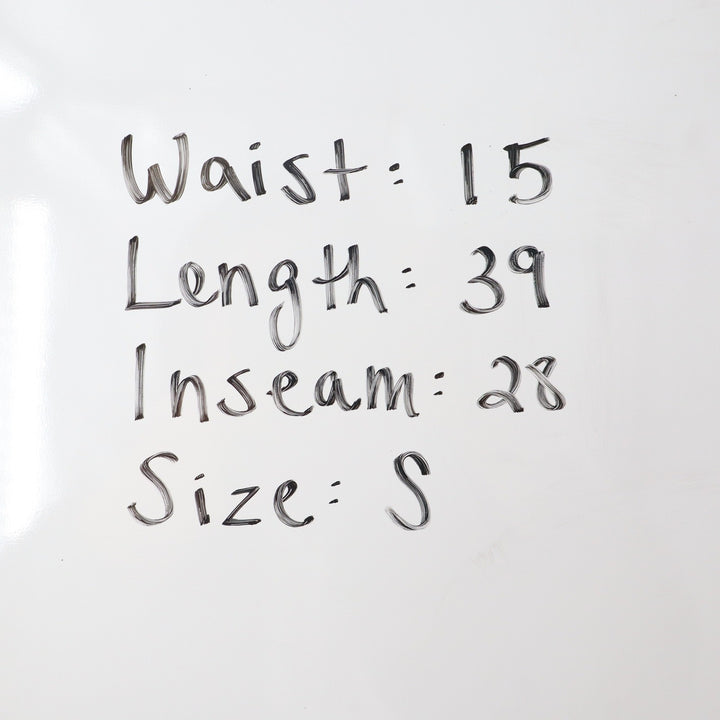 Waist: 15
Length: 39
Inseam: 28
Size: S